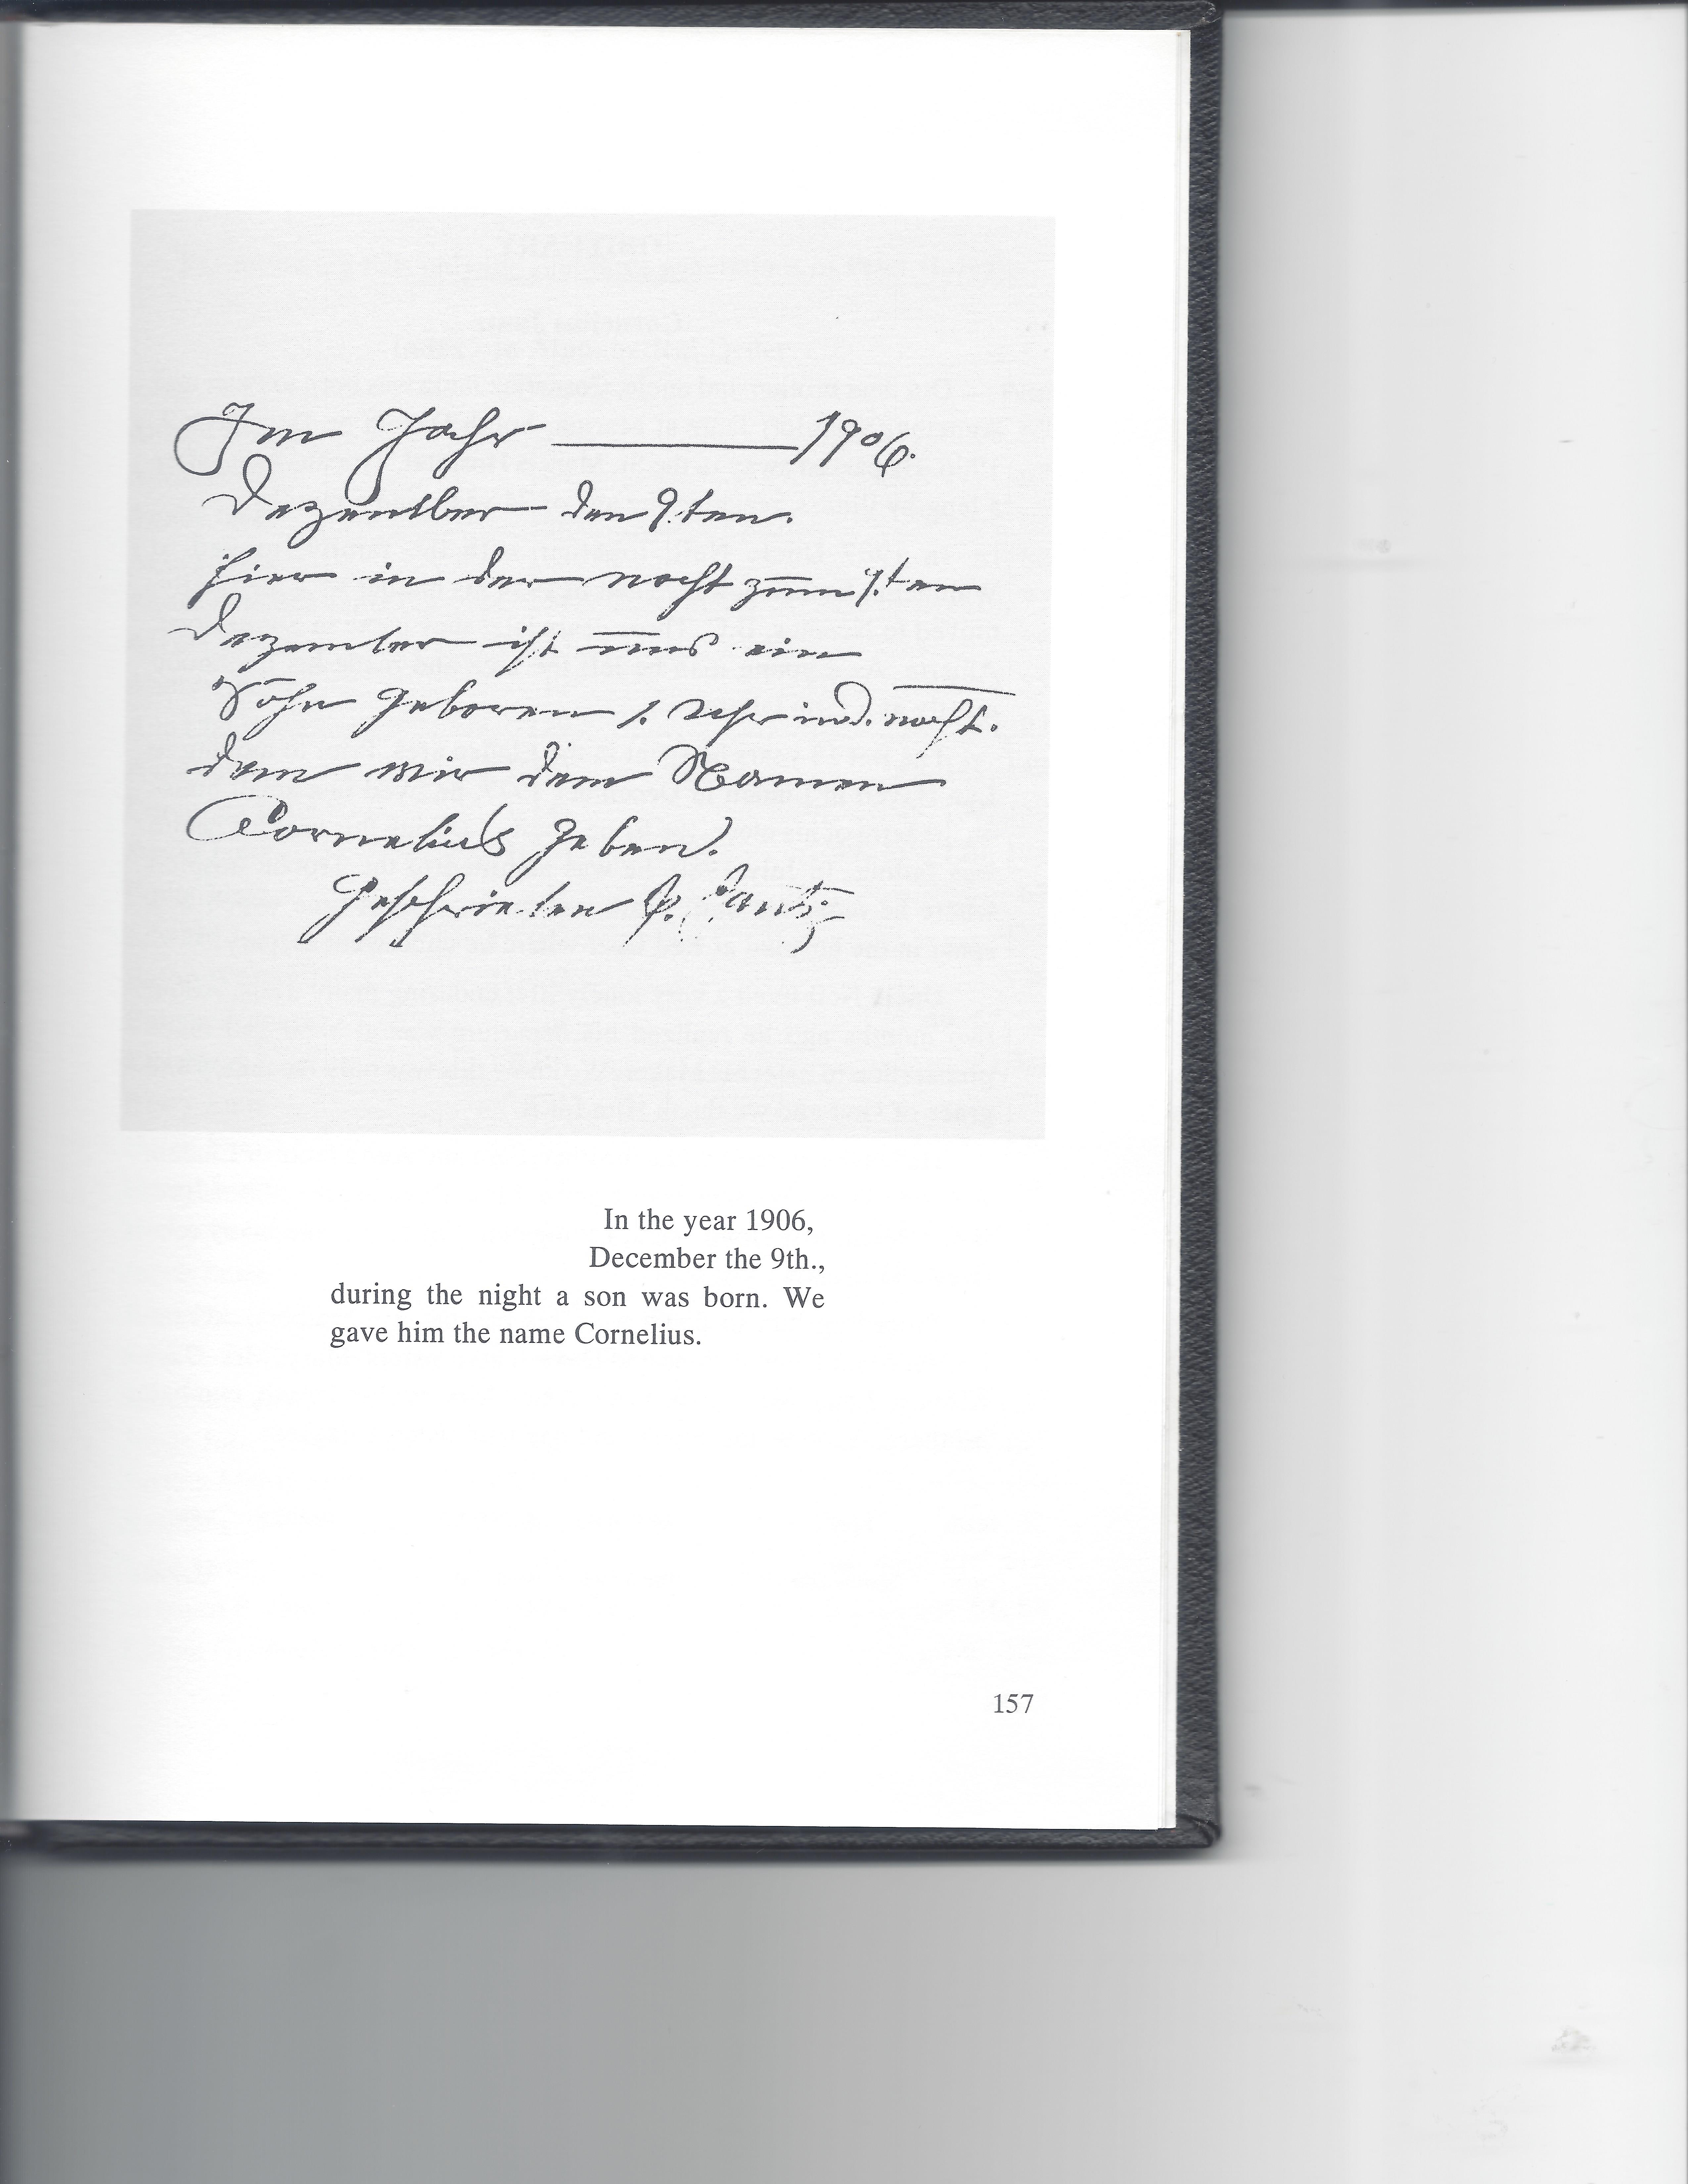 Im Jahr ——— 1906.
Dezember den 9.ten.
hier in der nacht zum 9.ten
Dezember ist uns ein
Sohn geboren 1. Uhr nacht.
dem wir dem Namen
Cornelius geben.
Geschrieben P. Jantz
In the year 1906,
December the 9th.,
during the night a son was born. We
gave him the name Cornelius.
157